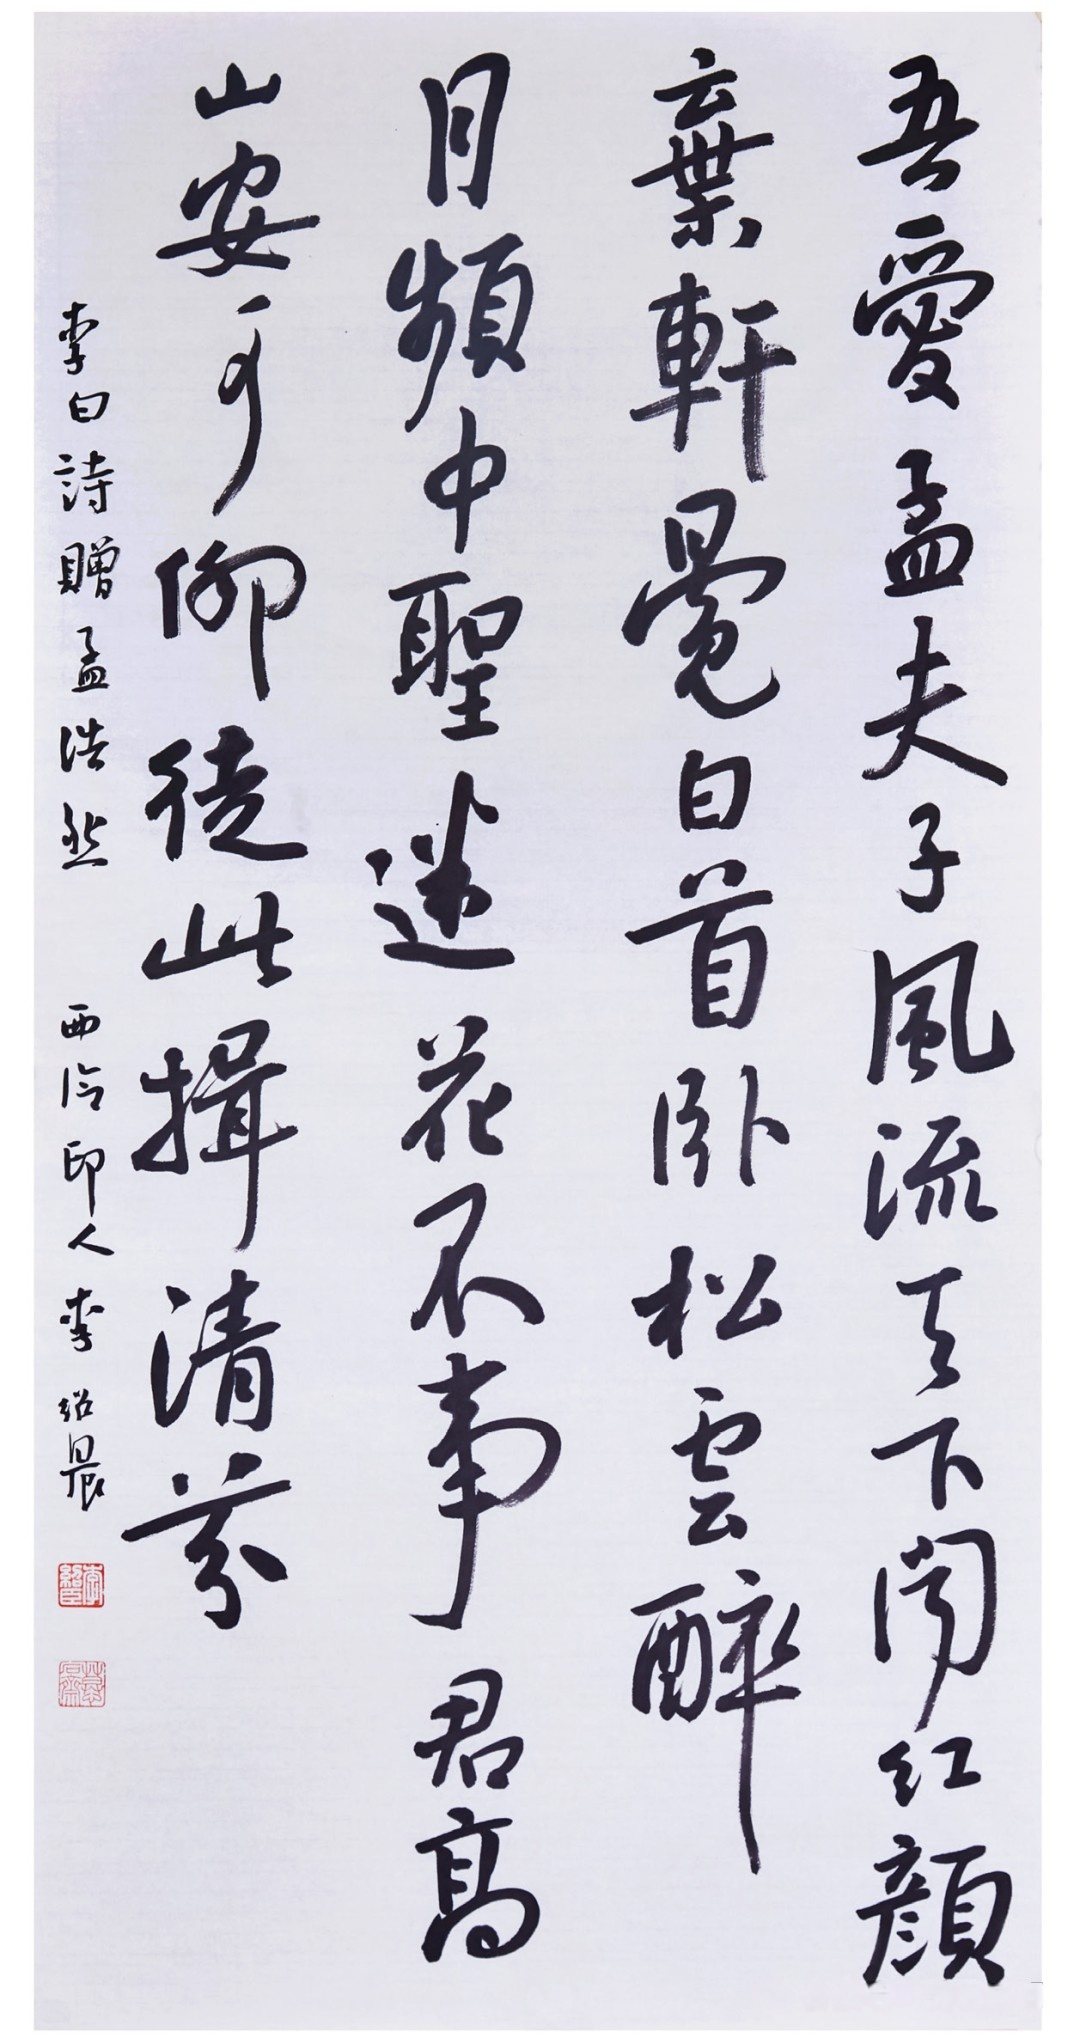 吾愛孟夫子風流天下聞红顔
棄軒冕白首卧松雲醉
月頻中聖迷花不事君高
山安可仰徒此揖清芬
李白詩贈孟浩然 西泠印人李绍晨